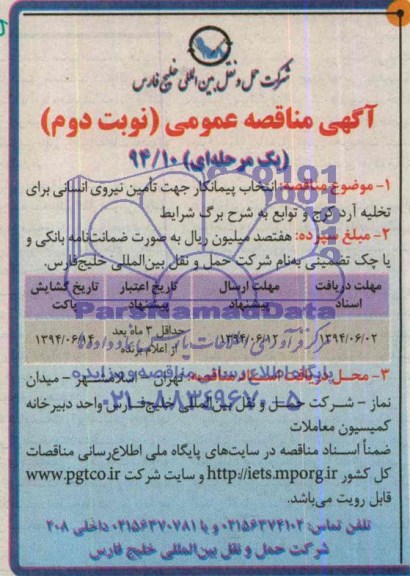 شرکت حمل و نقل بین المللی خلیج فارس
آگهی مناقصه عمومی (نوبت دوم)
(یک مرحله‌ای) ۹۴/۱۰
۱- موضوع مناقصه: انتخاب پیمانکار جهت تأمین نیروی انسانی برای
تخلیه آرد کرج و توابع به شرح برگ شرایط
۲- مبلغ سپرده: هفتصد میلیون ریال به صورت ضمانت‌نامه بانکی و
یا چک تضمینی به‌نام شرکت حمل و نقل بین‌المللی خلیج‌فارس.
مهلت دریافت اسناد
مهلت ارسال پیشنهاد
تاریخ اعتبار پیشنهاد
تاریخ گشایش پاکت
۱۳۹۴/۰۶/۰۲
۱۳۹۴/۰۶/۱۲
حداقل ۳ ماه بعد از اعلام برنده
۱۳۹۴/۰۶/۱۴
ParsNamadData
پایگاه اطلاع رسانی مناقصه و مزایده
۰۲۱-۸۸۳۴۹۶۷۰-۵
۳- محل دریافت اسناد مناقصه: تهران - اسلامشهر - میدان
نماز - شرکت حمل و نقل بین‌المللی خلیج‌فارس واحد دبیرخانه
کمیسیون معاملات
ضمناً اسناد مناقصه در سایت‌های پایگاه ملی اطلاع‌رسانی مناقصات
کل کشور http://iets.mporg.ir و سایت شرکت www.pgtco.ir
قابل رویت می‌باشد.
تلفن تماس: ۰۲۱۵۶۳۷۴۱۰۲ و یا ۰۲۱۵۶۳۷۰۷۸۱ داخلی ۲۰۸
شرکت حمل و نقل بین‌المللی خلیج فارس